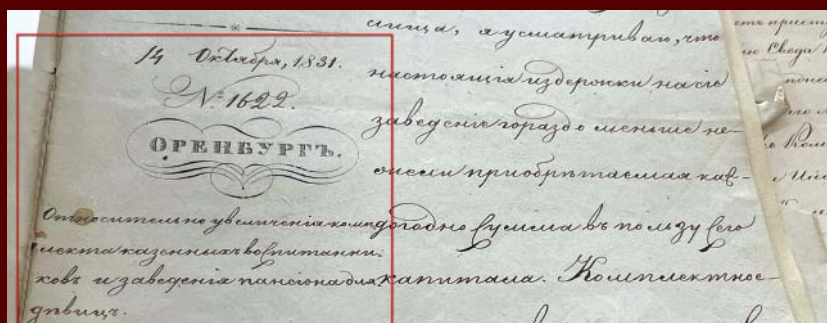 14 Октября, 1831.
№ 1622.
ОРЕНБУРГЪ.
Относительно увеличенія комп-
лекта казенныхъ воспитанни-
ковъ и заведенія пансіона для
дѣвицъ.
лища, я усматриваю, что
настоящія издержки на сіе
заведеніе гораздо меньше не-
жели пріобрѣтаемая каж-
догодно сумма въ пользу его
капитала. Комплектное